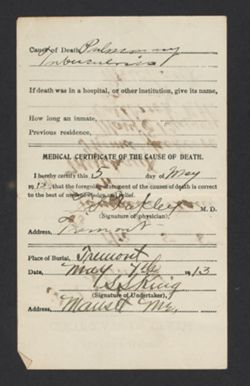 Cause of Death, Pulmonary
Tuberculosis
If death was in a hospital, or other institution, give its name,
How long an inmate,
Previous residence,
MEDICAL CERTIFICATE OF THE CAUSE OF DEATH.
I hereby certify this 5 day of May
1913, that the foregoing statement of the causes of death is correct
to the best of my knowledge and belief.
M. D.
(Signature of physician),
Address, Tremont
Place of Burial, Tremont
Date, May 7th 1913
King
(Signature of Undertaker),
Address, Manset Me.